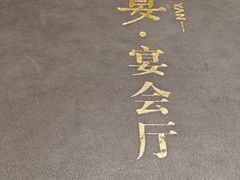 宴·宴会厅
YAN—